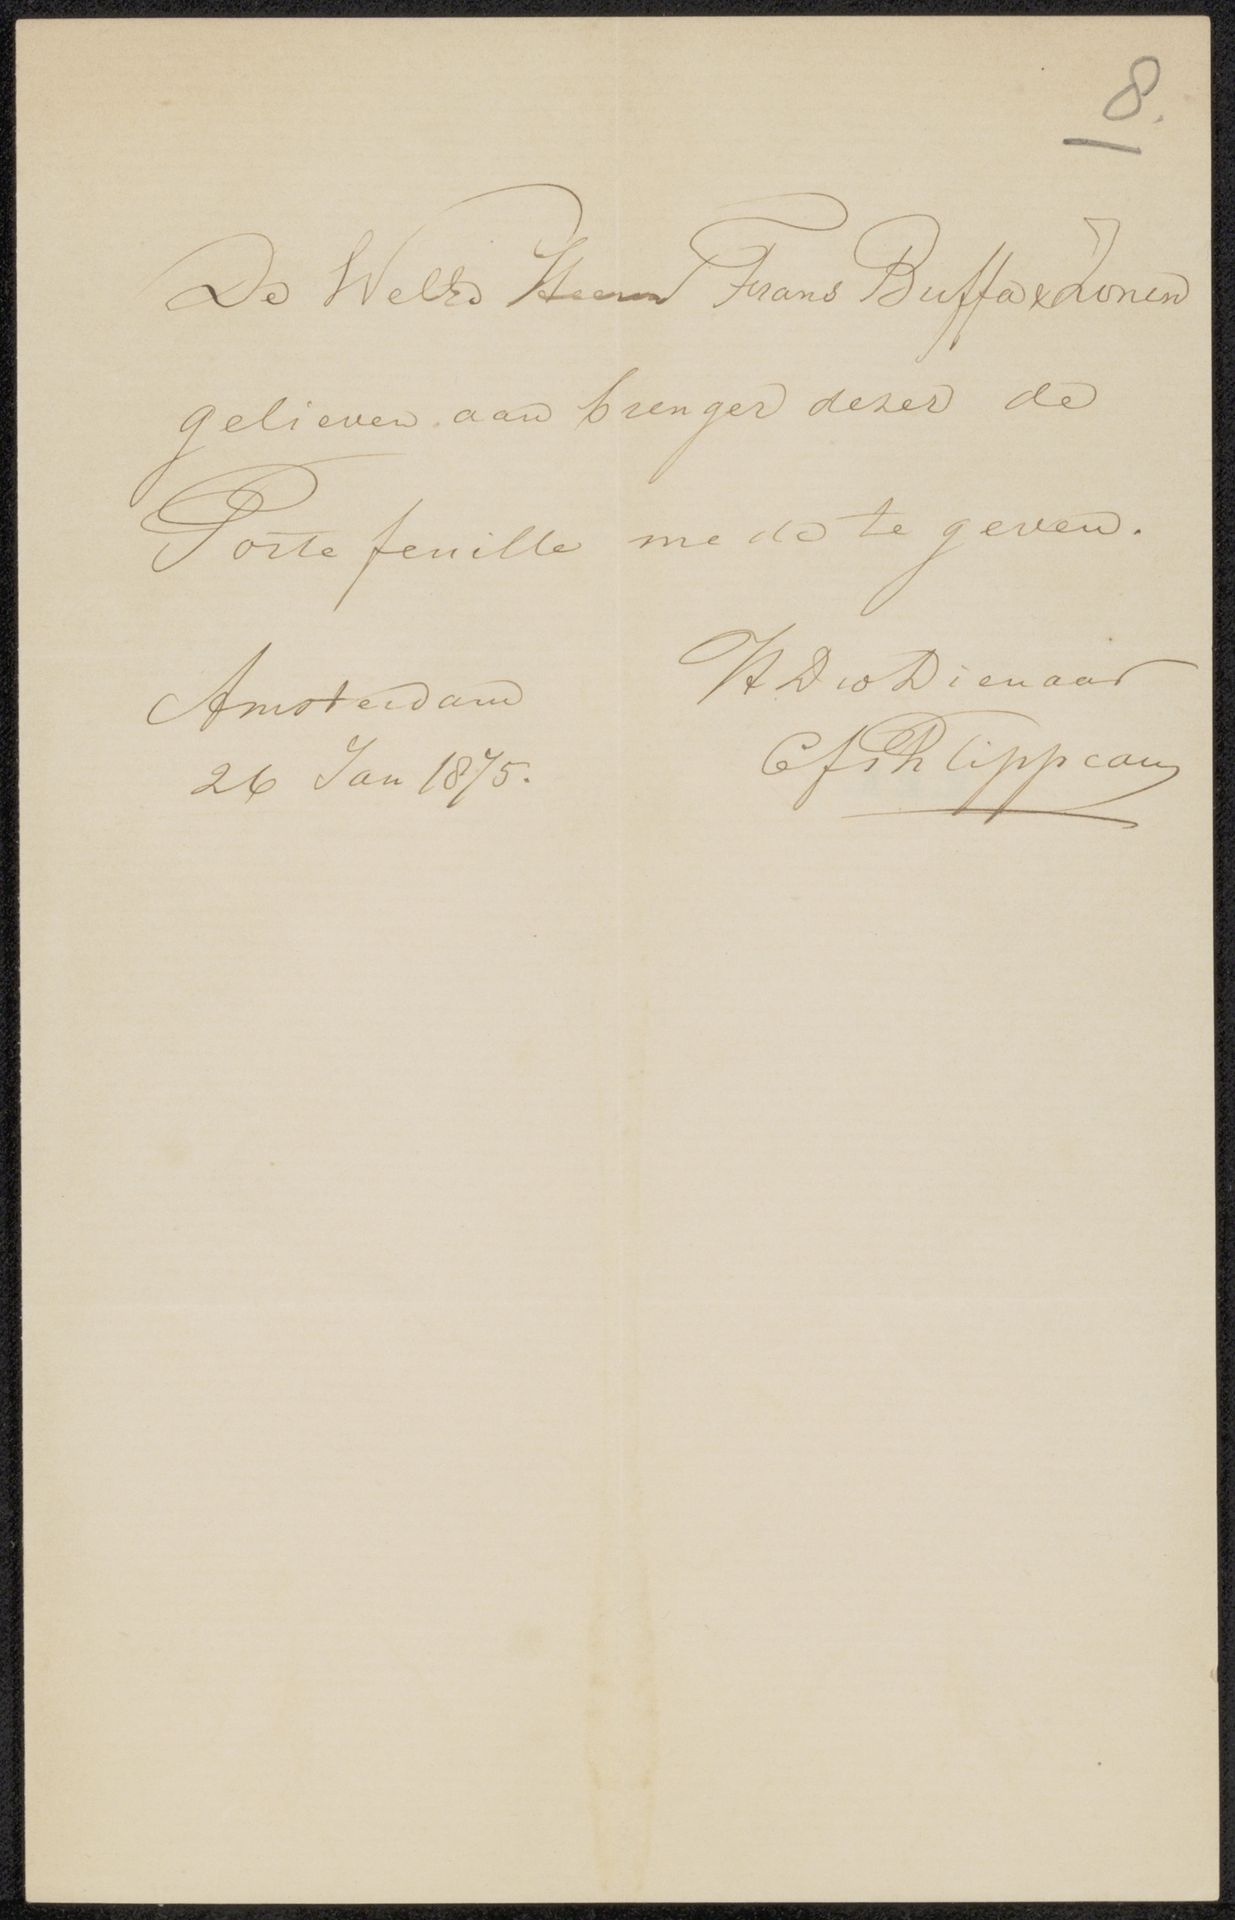 8.
De WelEd Heeren Frans Buffa & Zonen
gelieven aan brenger dezer de
Portefeuille mede te geven.
Amsterdam
UEd dw Dienaar
26 Jan 1875.
C f Phlippeau